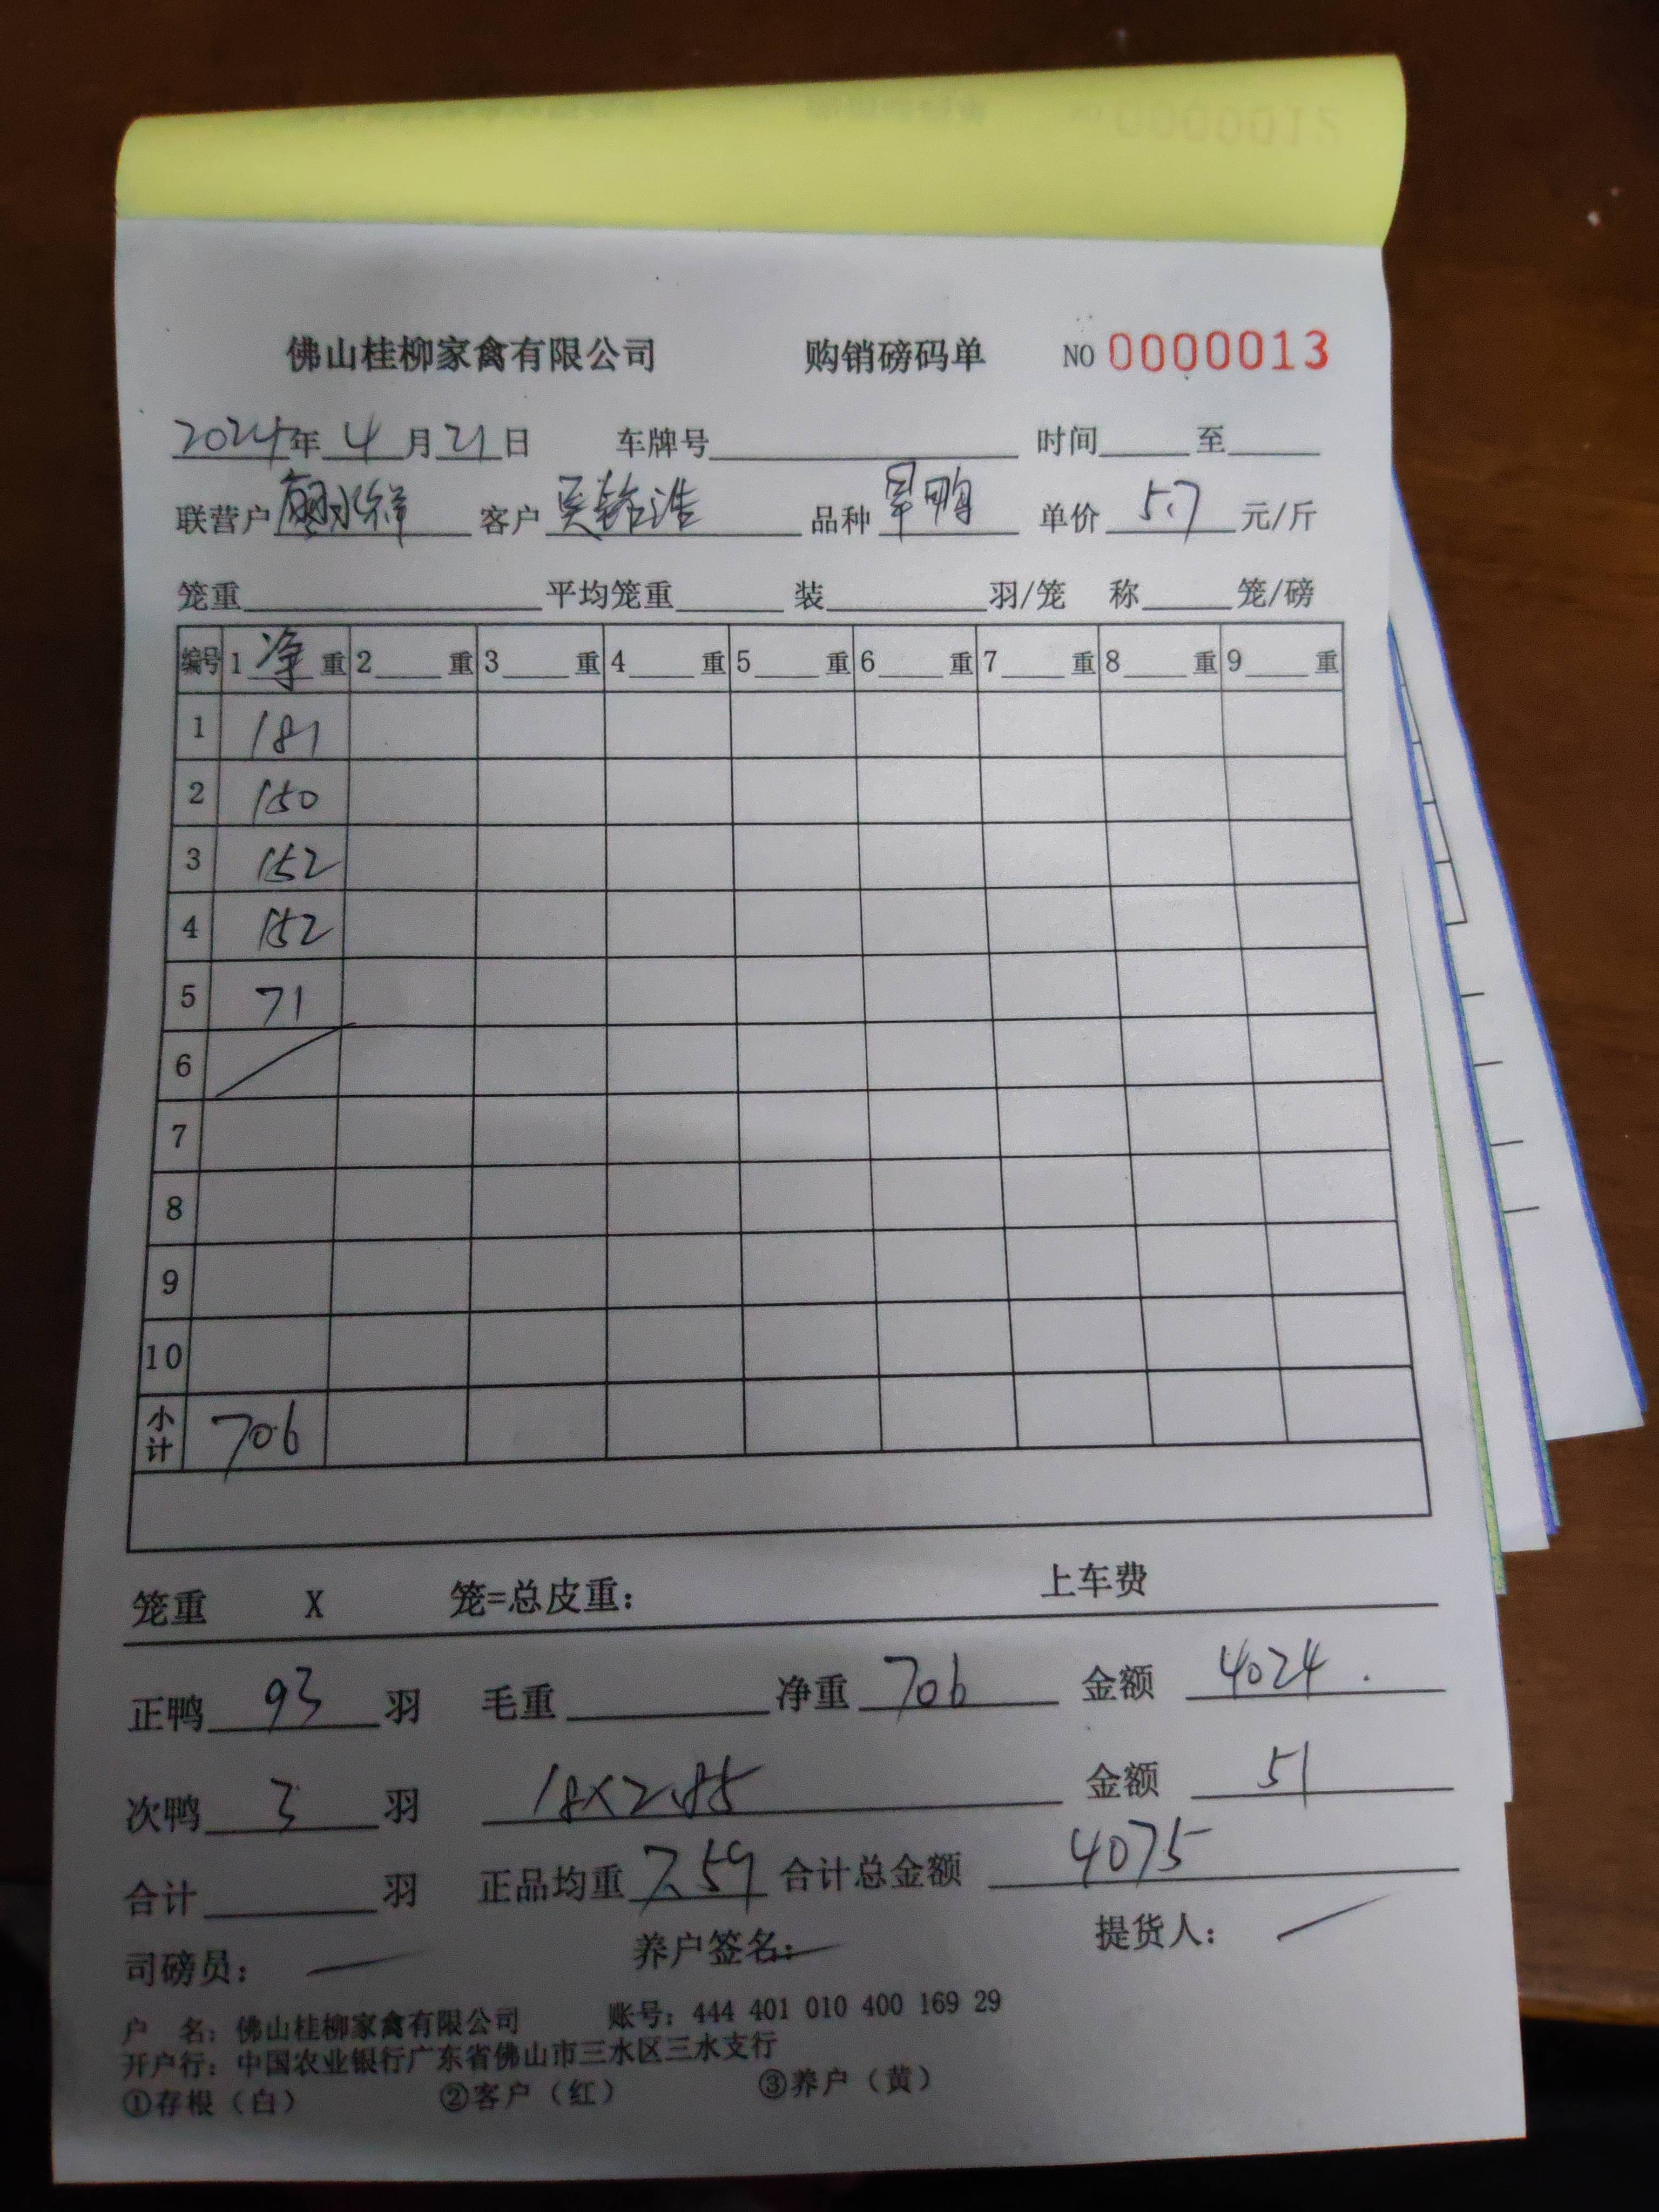 佛山桂柳家禽有限公司 购销磅码单 NO 0000013
2024年 4月21日 车牌号 时间 至
联营户 水祥 客户 吴 浩 品种 旱鸭 单价 5.7 元/斤
笼重 平均笼重 装 羽/笼 称 笼/磅
编号 1 净 重 2 重 3 重 4 重 5 重 6 重 7 重 8 重 9 重
1 181
2 150
3 152
4 152
5 71
6
7
8
9
10
小计 706
笼重 X 笼=总皮重： 上车费
正鸭 93 羽 毛重 净重 706 金额 4024.
次鸭 3 羽 18×2.85 金额 51
合计 羽 正品均重 7.59 合计总金额 4075
司磅员： 养户签名： 提货人：
户 名：佛山桂柳家禽有限公司 账号：444 401 010 400 169 29
开户行：中国农业银行广东省佛山市三水区三水支行
①存根（白） ②客户（红） ③养户（黄）